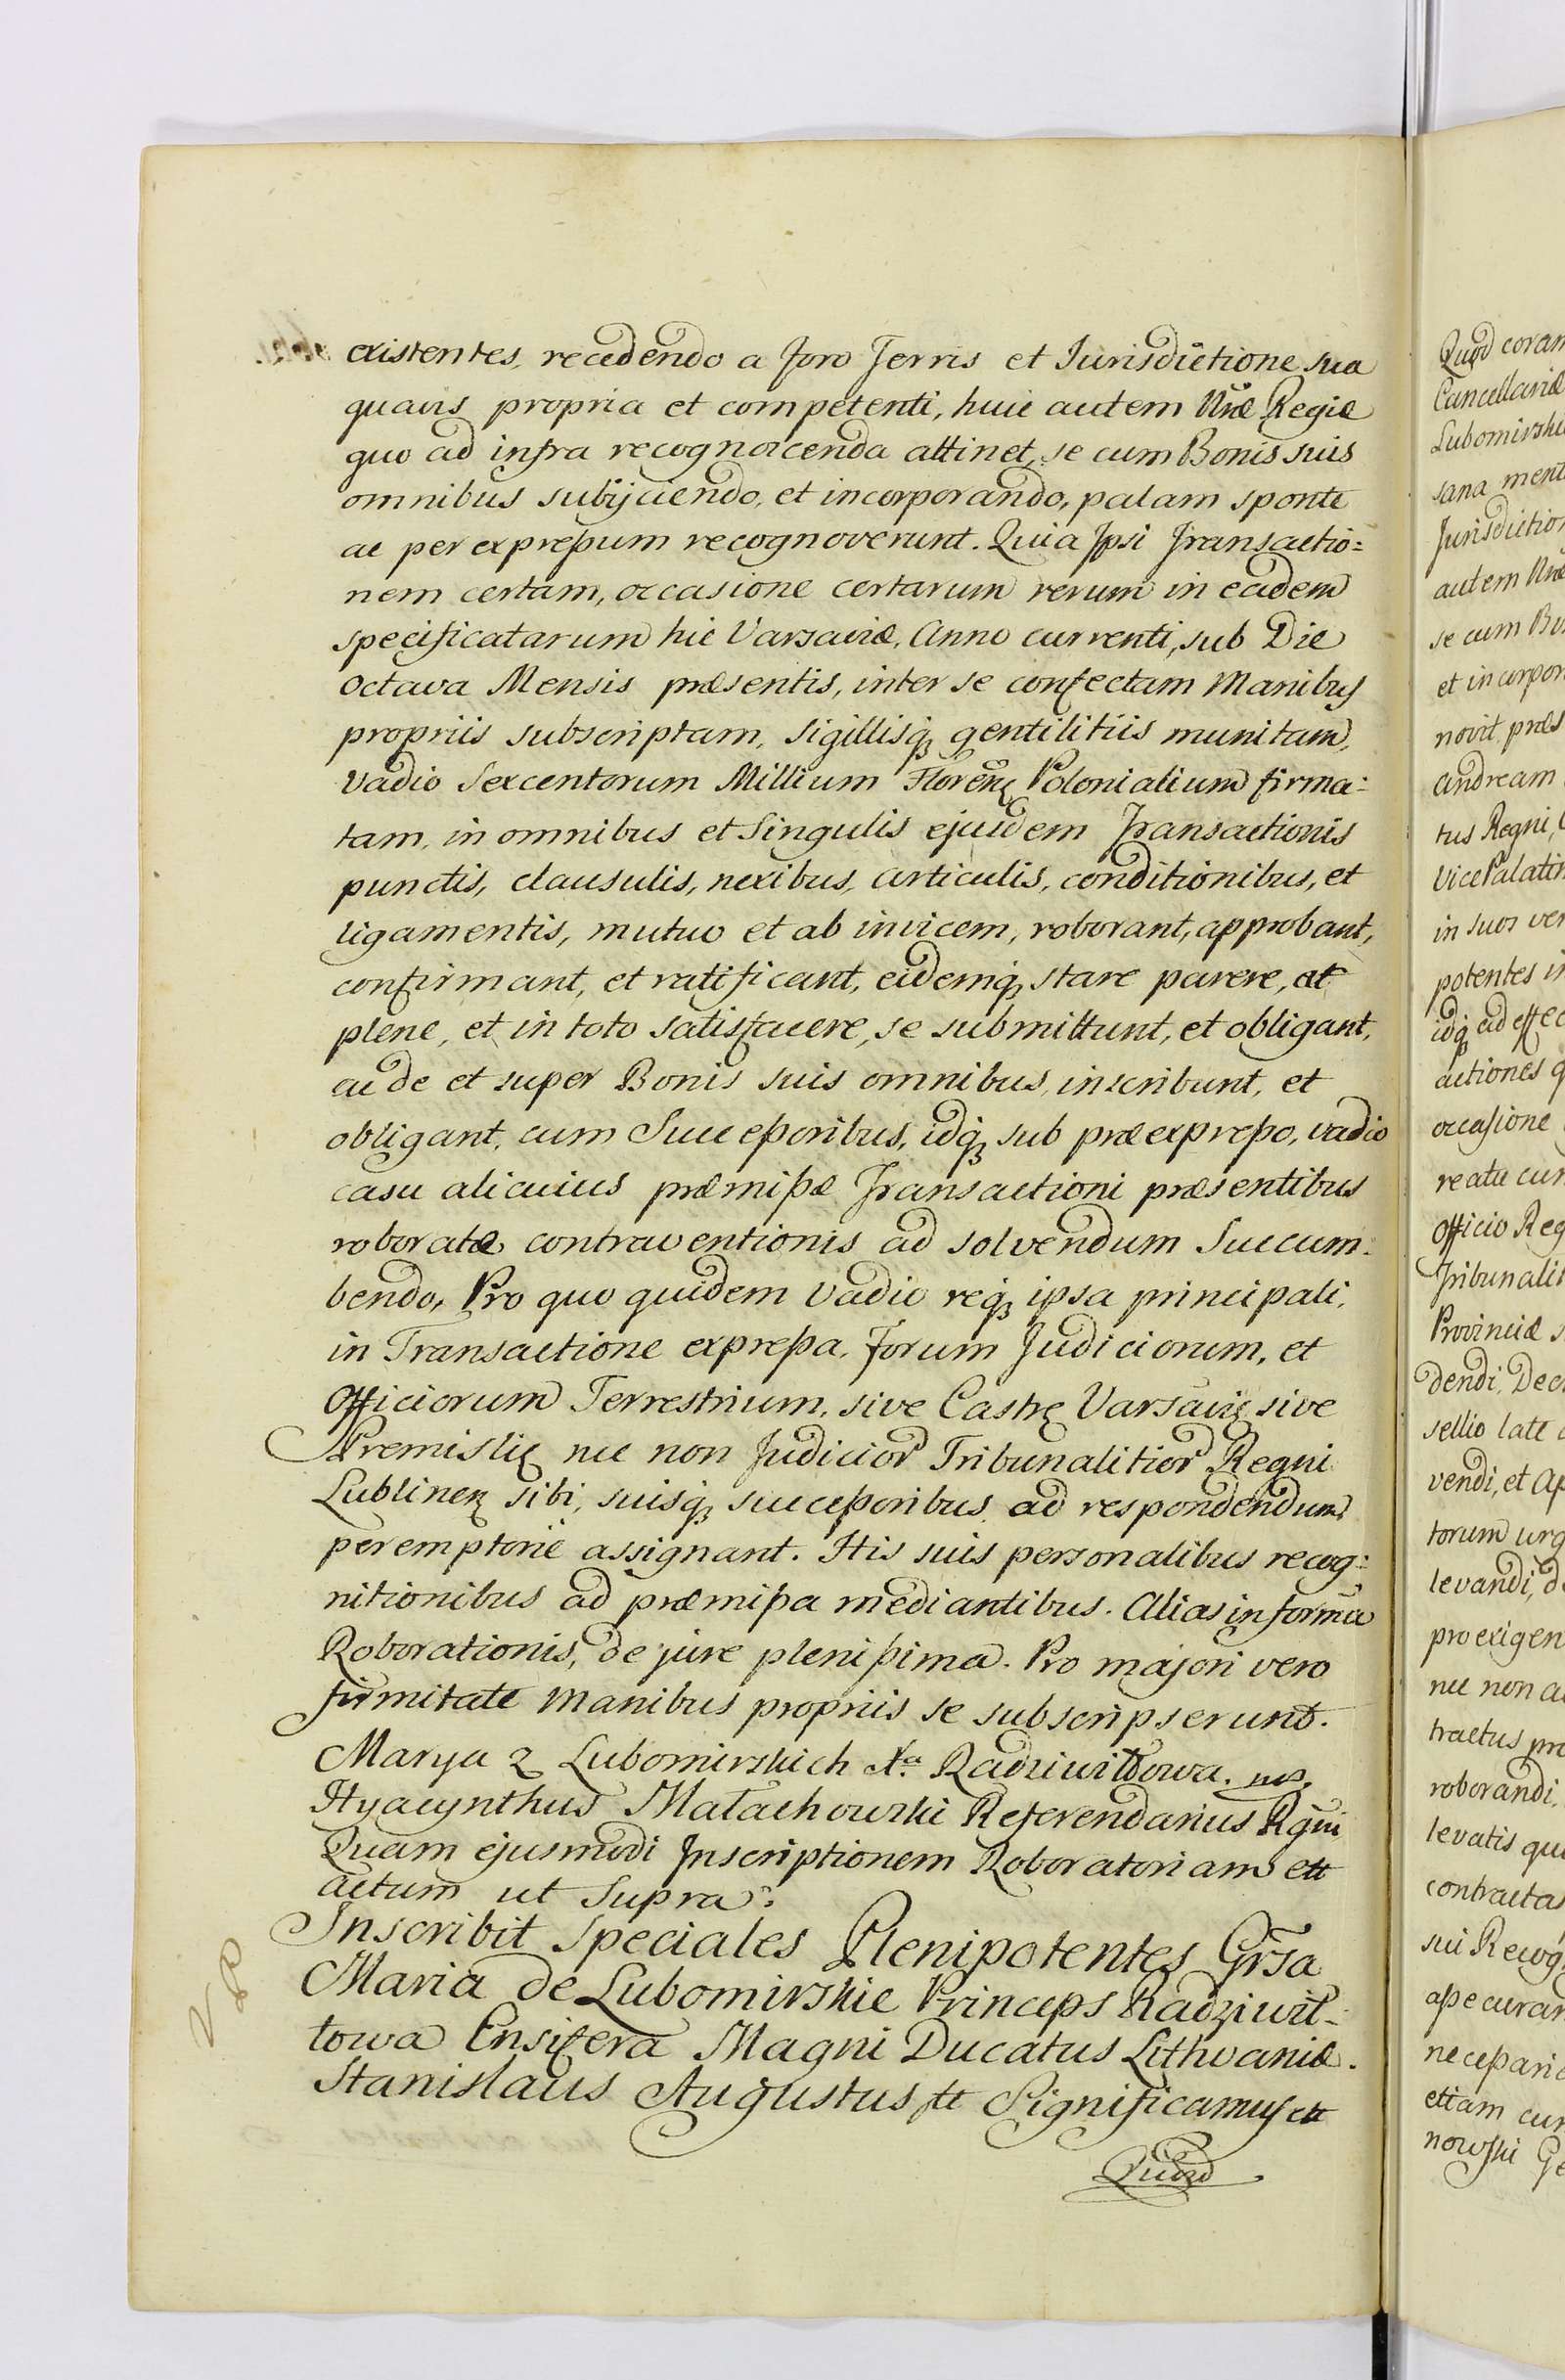 existentes, recedendo a foro Terris et Jurisdictione sua
quavis propria et competenti, huic autem Nræ Regiæ
quo ad infra recognoscenda attinet, se cum Bonis suis
omnibus subijciendo, et incorporando, palam sponte
ac per expreßum recognoverunt. Quia Ipsi Transactio=
nem certam, occasione certarum rerum in eadem
specificatarum hic Varsaviæ, Anno currenti, sub Die
Octava Mensis præsentis, inter se confectam Manibus
propriis subscriptam, Sigillisq; gentilitiis munitam,
Vadio Sexcentorum Millium Floreñ Polonialium firma=
tam, in omnibus et Singulis ejusdem Transactionis
punctis, clausulis, nexibus, articulis, conditionibus, et
ligamentis, mutuo et ab invicem, roborant, approbant,
confirmant, et ratificant, eidemq; stare parere, et
plene, et in toto satisfacere, se submittunt, et obligant,
ac de et super Bonis suis omnibus, inscribunt, et
obligant, cum Succeßoribus, idq; sub præexpreßo, vadio
casu alicuius præmißæ Transactioni præsentibus
roboratæ contraventionis ad solvendum Succum=
bendo, Pro quo quidem Vadio req; ipsa principali,
in Transactione expreßa, Forum Judiciorum, et
Officiorum Terrestrium, sive Castrę Varsavię sive
Premislię nec non Judicior Tribunalitior Regni
Lublineñ sibi, suisq; succeßoribus ad respondendum
peremptorie assignant. His suis personalibus recog=
nitionibus ad præmißa mediantibus. Alias in forma
Roborationis, de jure plenißima. Pro majori vero
firmitate Manibus propriis se subscripserunt.
Marya z Lubomirskich Xa Radziwiłłowa. mp.
Hyacynthus Małachowski Referendarius Rgni
Quam ejusmodi Inscriptionem Roboratoriam ett
actum ut Supra.
Inscribit Speciales Plenipotentes Grsa
Maria de Lubomirskie Princeps Radziwił=
łowa Ensifera Magni Ducatus Lithvaniæ.
Stanislaus Augustus ett Significamus ett
Quod
VP
Quod coram
Cancellariæ
Lubomirskie
sana ment
Jurisdiction
autem Nræ
se cum Bo
et incorpor
novit, præs
Andream
tus Regni,
Vice Palatin
in suos ver
potentes in
idq; ad effec
actiones q
occasione
reatu cur
Officio Reg
Tribunalit
Provinciæ s
dendi, Dec
sellio late
vendi, et Ap
torum urg
levandi, d
pro exigen
nec non a
tractus pro
roborandi,
levatis qu
contracta
sui Recog
aße curar
neceßari
etiam cur
nowski Ge